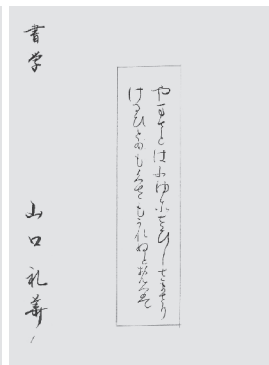 やまさとはふゆそさひしさまさり
けるひとめもくさもかれぬとおもへは
書学 山口礼華